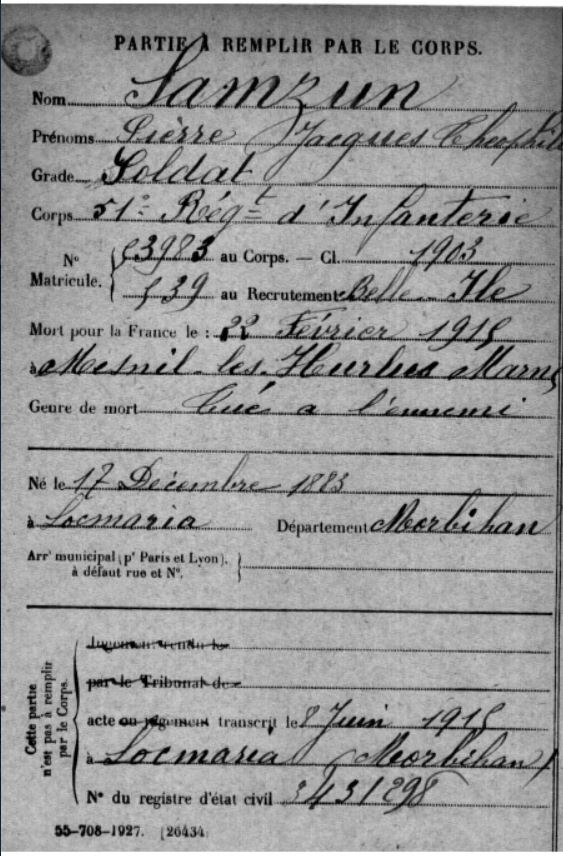 PARTIE À REMPLIR PAR LE CORPS.
Nom Samzun
Prénoms Pierre Jacques Théophile
Grade Soldat
Corps 51e Régt d'Infanterie
N° Matricule. 3983 au Corps. — Cl. 1903
39 au Recrutement Belle-Ile
Mort pour la France le : 22 Février 1915
à Mesnil-les-Hurlus Marne
Genre de mort Tué a l'ennemi
Né le 17 Décembre 1883
à Locmaria Département Morbihan
Arrt municipal (pr Paris et Lyon),
à défaut rue et N°.
Cette partie n'est pas à remplir par le Corps.
Jugement rendu le
par le Tribunal de
acte ou jugement transcrit le 8 Juin 1915
à Locmaria (Morbihan)
N° du registre d'état civil 431298
55-708-1927. [26434.